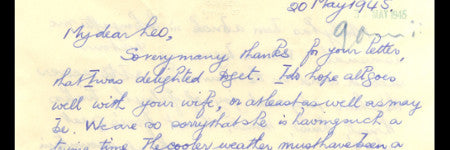 20 May 1945.
MAY 1945
My dear Leo,
So very many thanks for your letter,
that I was delighted to get. I do hope all goes
well with your wife, or at least as well as may
be. We are so sorry that she is having such a
trying time. The cooler weather must have been a